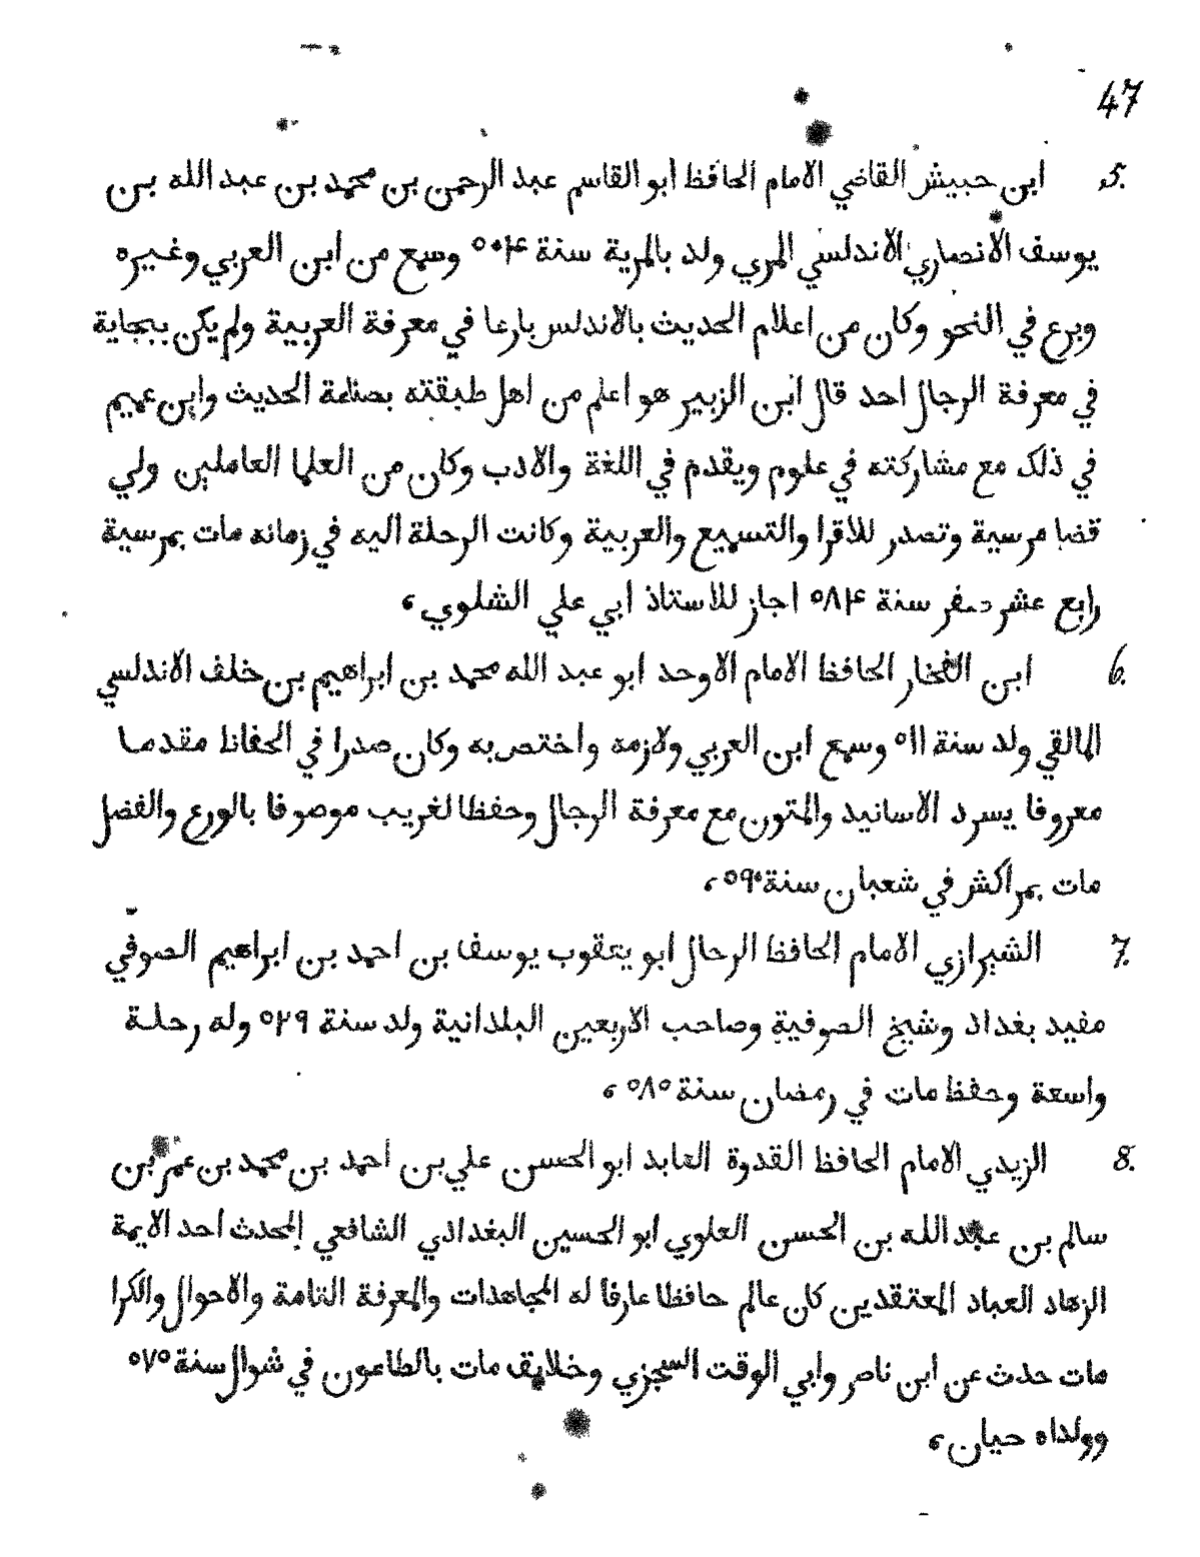 47
5. ابن حبيش القاضي الامام الحافظ ابو القاسم عبد الرحمن بن محمد بن عبد الله بن
يوسف الانصاري الاندلسي المري ولد بالمرية سنة ٥٠۴ وسمع من ابن العربي وغيره
وبرع في النحو وكان من اعلام الحديث بالاندلس بارعا في معرفة العربية ولم يكن ببجاية
في معرفة الرجال احد قال ابن الزبير هو اعلم من اهل طبقته بصناعة الحديث وابن عميم
في ذلك مع مشاركته في علوم ويقدم في اللغة والادب وكان من العلما العاملين ولي
قضا مرسية وتصدر للاقرا والتسميع والعربية وكانت الرحلة اليه في زمانه مات بمرسية
رابع عشر صفر سنة ٥٨۴ اجاز للاستاذ ابي علي الشلوي،
6. ابن الفخار الحافظ الامام الاوحد ابو عبد الله محمد بن ابراهيم بن خلف الاندلسي
المالقي ولد سنة ٥١١ وسمع ابن العربي ولازمه واختص به وكان صدرا في الحفاظ مقدما
معروفا يسرد الاسانيد والمتون مع معرفة الرجال وحفظا لغريب موصوفا بالورع والفضل
مات بمراكش في شعبان سنة ٥٩٠،
7. الشيرازي الامام الحافظ الرحال ابو يعقوب يوسف بن احمد بن ابراهيم الصوفي
مفيد بغداد وشيخ الصوفية وصاحب الاربعين البلدانية ولد سنة ٥٢٩ وله رحلة
واسعة وحفظ مات في رمضان سنة ٥٨٥،
8. الزيدي الامام الحافظ القدوة العابد ابو الحسن علي بن احمد بن محمد بن عمر بن
سالم بن عبد الله بن الحسن العلوي ابو الحسين البغدادي الشافعي المحدث احد الايمة
الزهاد العباد المعتقدين كان عالم حافظا عارفا له المجاهدات والمعرفة التامة والاحوال والكرا
مات حدث عن ابن ناصر وابي الوقت السجزي وخلايق مات بالطاعون في شوال سنة ٥٧٥
وولداه حيان،